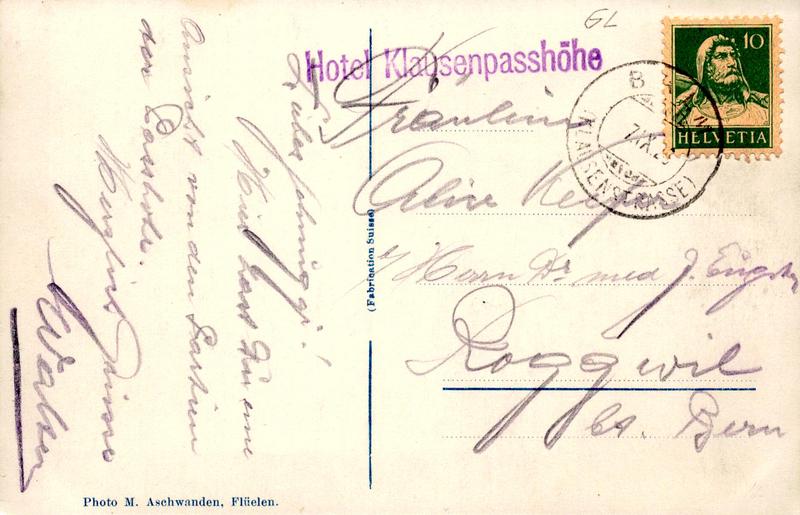 GL
Hotel Klausenpasshöhe
10
HELVETIA
(KLAUSENSTRASSE)
Fräulein
Alice Keller
Herrn Dr med J. Eugster
Roggwil
Bern
(Fabrication Suisse)
Hier hast Du eine
Ansicht von den Partien
der Passhöhe.
Herzlich Grüsse
Photo M. Aschwanden, Flüelen.